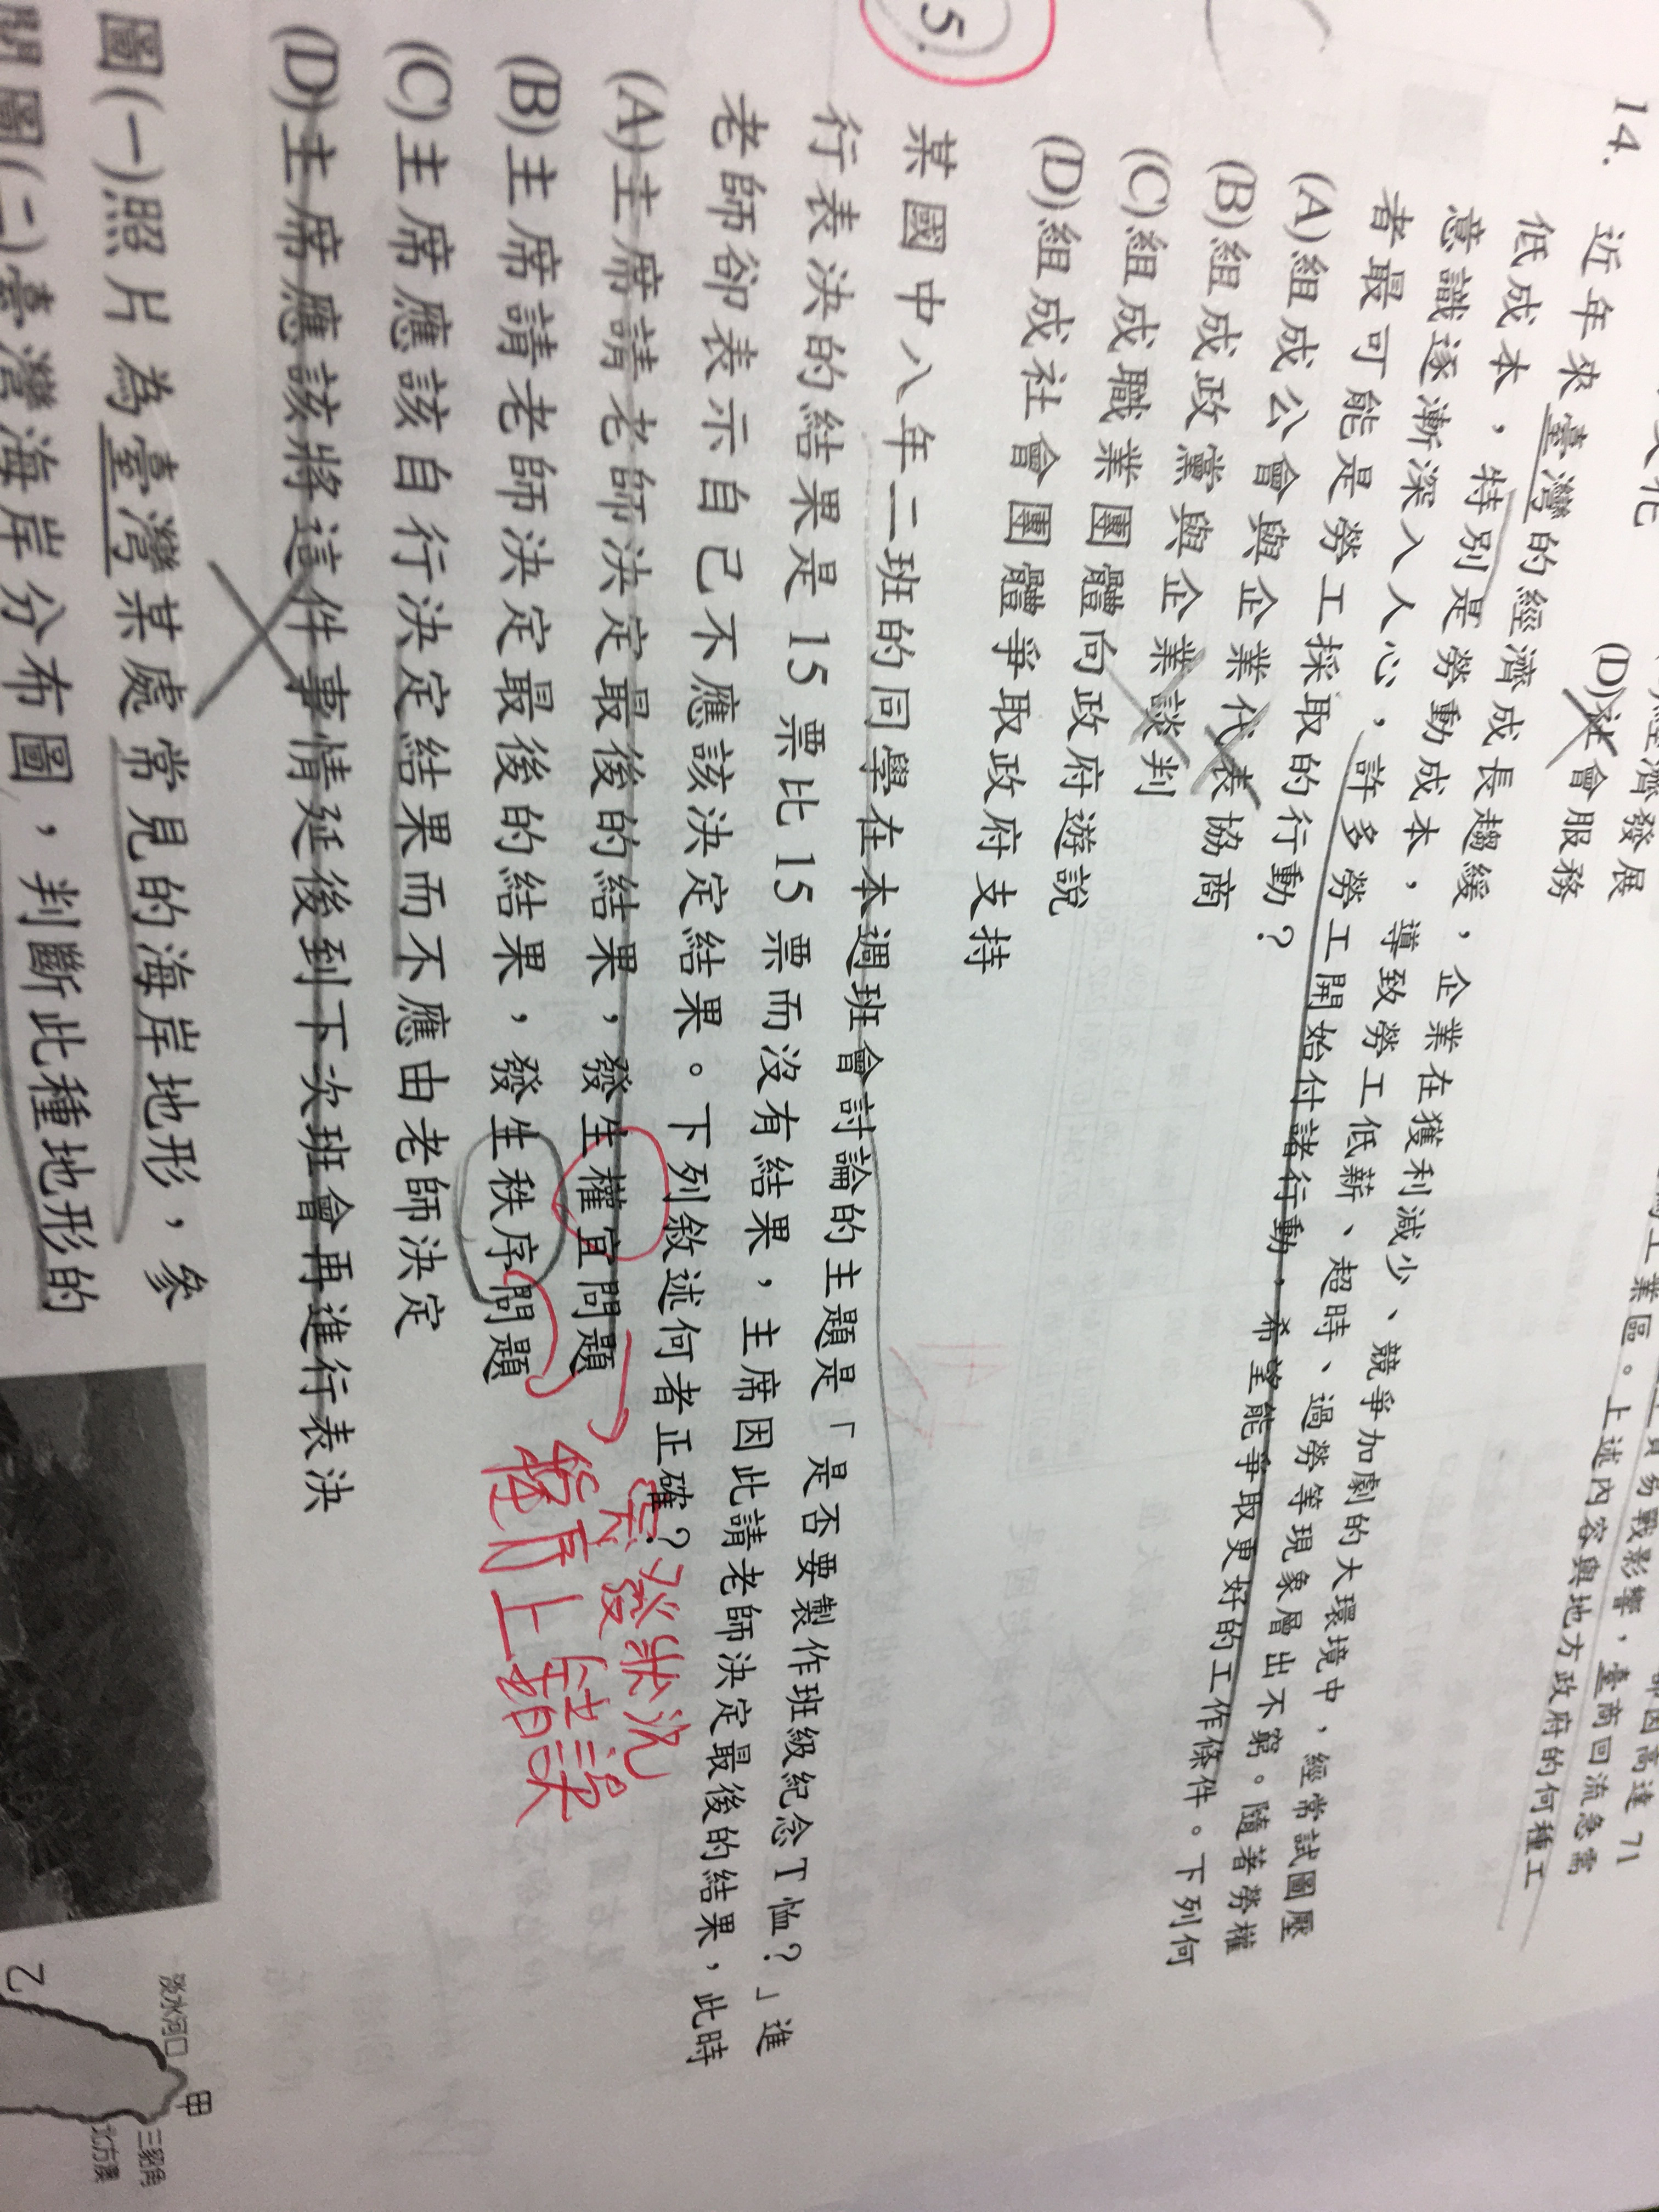 (D)社會服務
14. 近年來臺灣的經濟成長趨緩，企業在獲利減少、競爭加劇的大環境中，經常試圖壓
低成本，特別是勞動成本，導致勞工低薪、超時、過勞等現象層出不窮。隨著勞權
意識逐漸深入人心，許多勞工開始付諸行動，希望能爭取更好的工作條件。下列何
者最可能是勞工採取的行動？
(A)組成公會與企業代表協商
(B)組成政黨與企業談判
(C)組成職業團體向政府遊說
(D)組成社會團體爭取政府支持
5. 某國中八年二班的同學在本週班會討論的主題是「是否要製作班級紀念T恤？」進
行表決的結果是 15 票比 15 票而沒有結果，主席因此請老師決定最後的結果，此時
老師卻表示自己不應該決定結果。下列敘述何者正確？
(A)主席請老師決定最後的結果，發生權宜問題
(B)主席請老師決定最後的結果，發生秩序問題
(C)主席應該自行決定結果而不應由老師決定
(D)主席應該將這件事情延後到下次班會再進行表決
緊急狀況
程序上錯誤
圖(一)照片為臺灣某處常見的海岸地形，參
閱圖(二)臺灣海岸分布圖，判斷此種地形的
淡水河口
甲
三貂角
乙